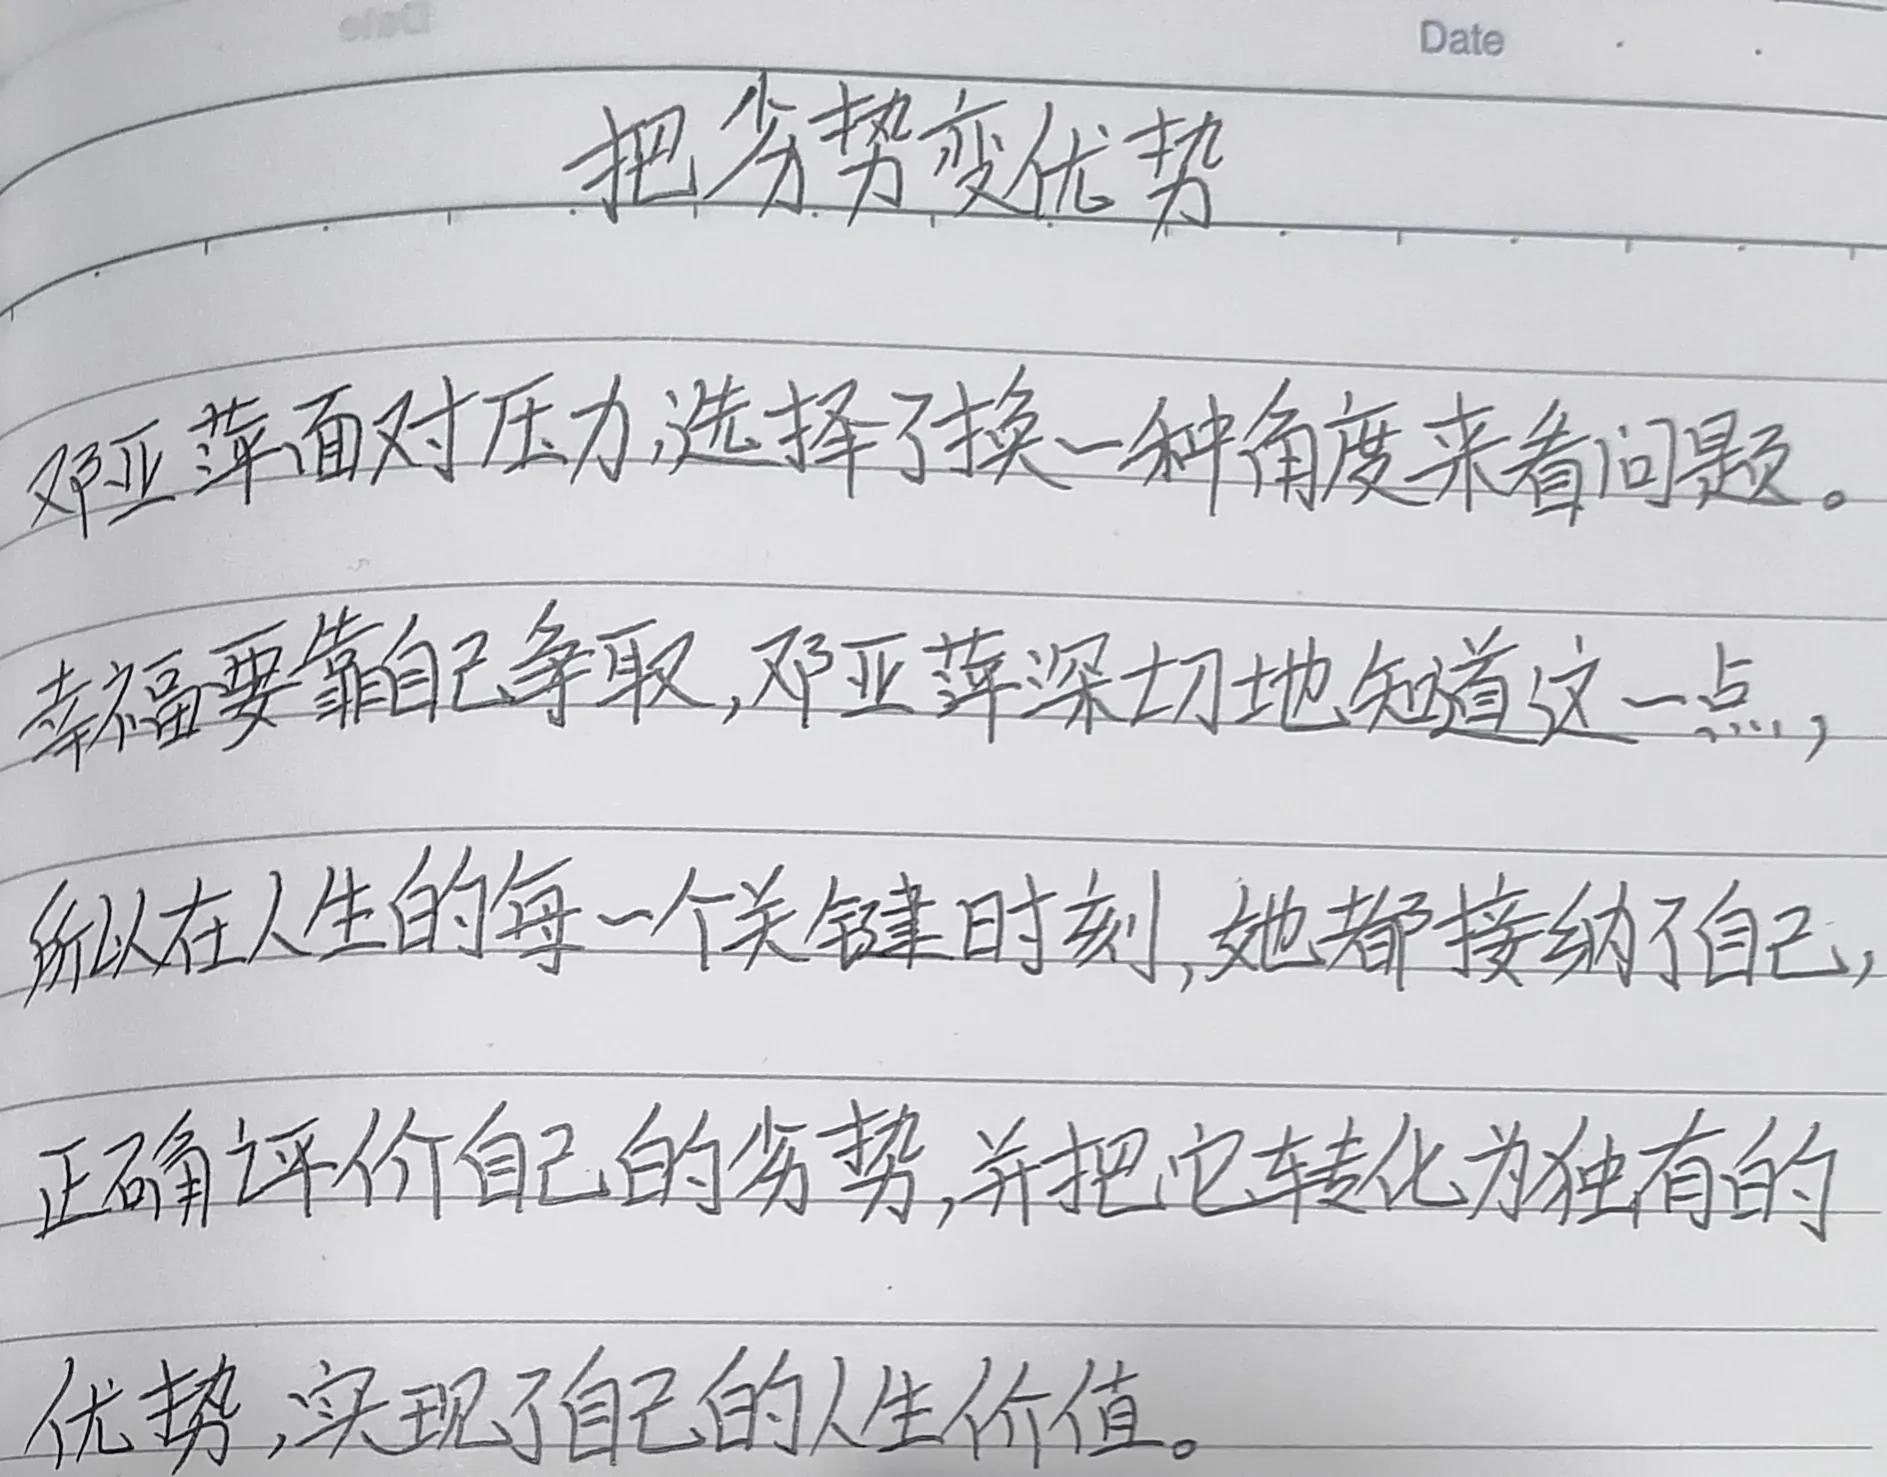 Date
把劣势变优势
邓亚萍面对压力,选择了换一种角度来看问题。
幸福要靠自己争取,邓亚萍深切地知道这一点,
所以在人生的每一个关键时刻,她都接纳了自己,
正确评价自己的劣势,并把它转化为独有的
优势,实现了自己的人生价值。